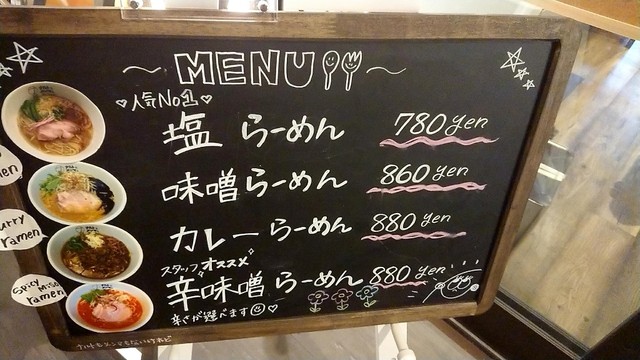 MENU
人気No1
塩らーめん 780yen
味噌らーめん 860yen
カレーらーめん 880yen
スタッフオススメ
辛味噌らーめん 880yen
辛さが選べます
urry ramen
Spicy Miso ramen